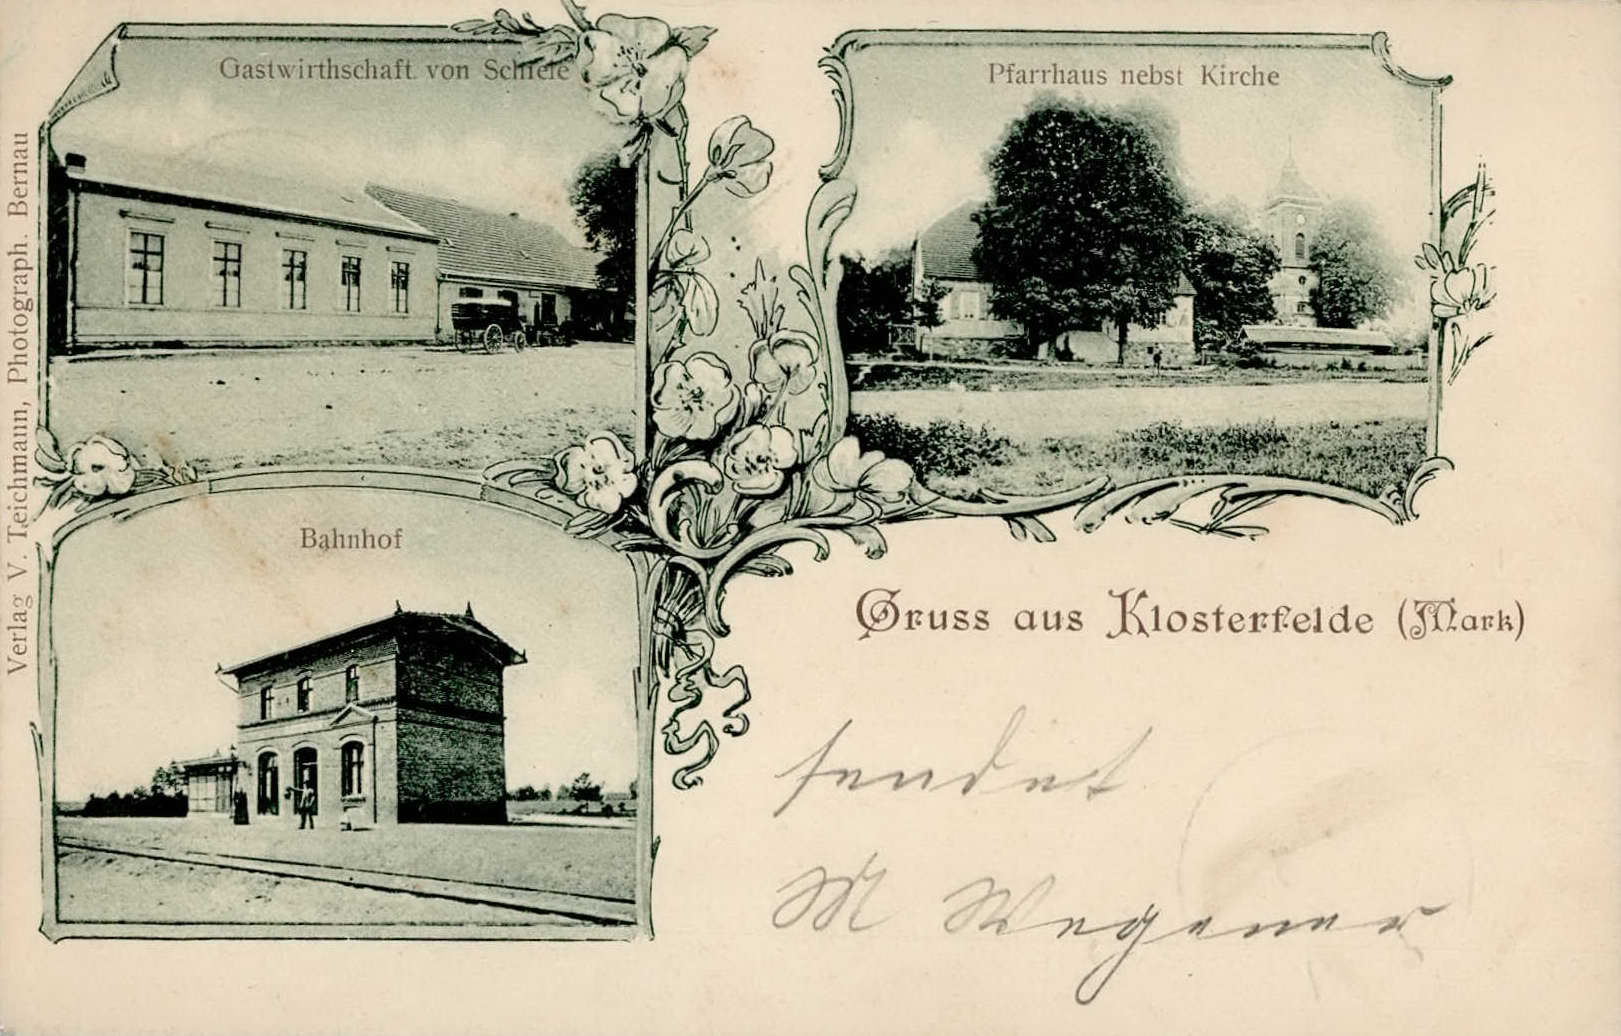 Gastwirthschaft von Schiele
Pfarrhaus nebst Kirche
Verlag V. Teichmann, Photograph. Bernau
Bahnhof
Gruss aus Klosterfelde (Mark)
sendet
M Wegener